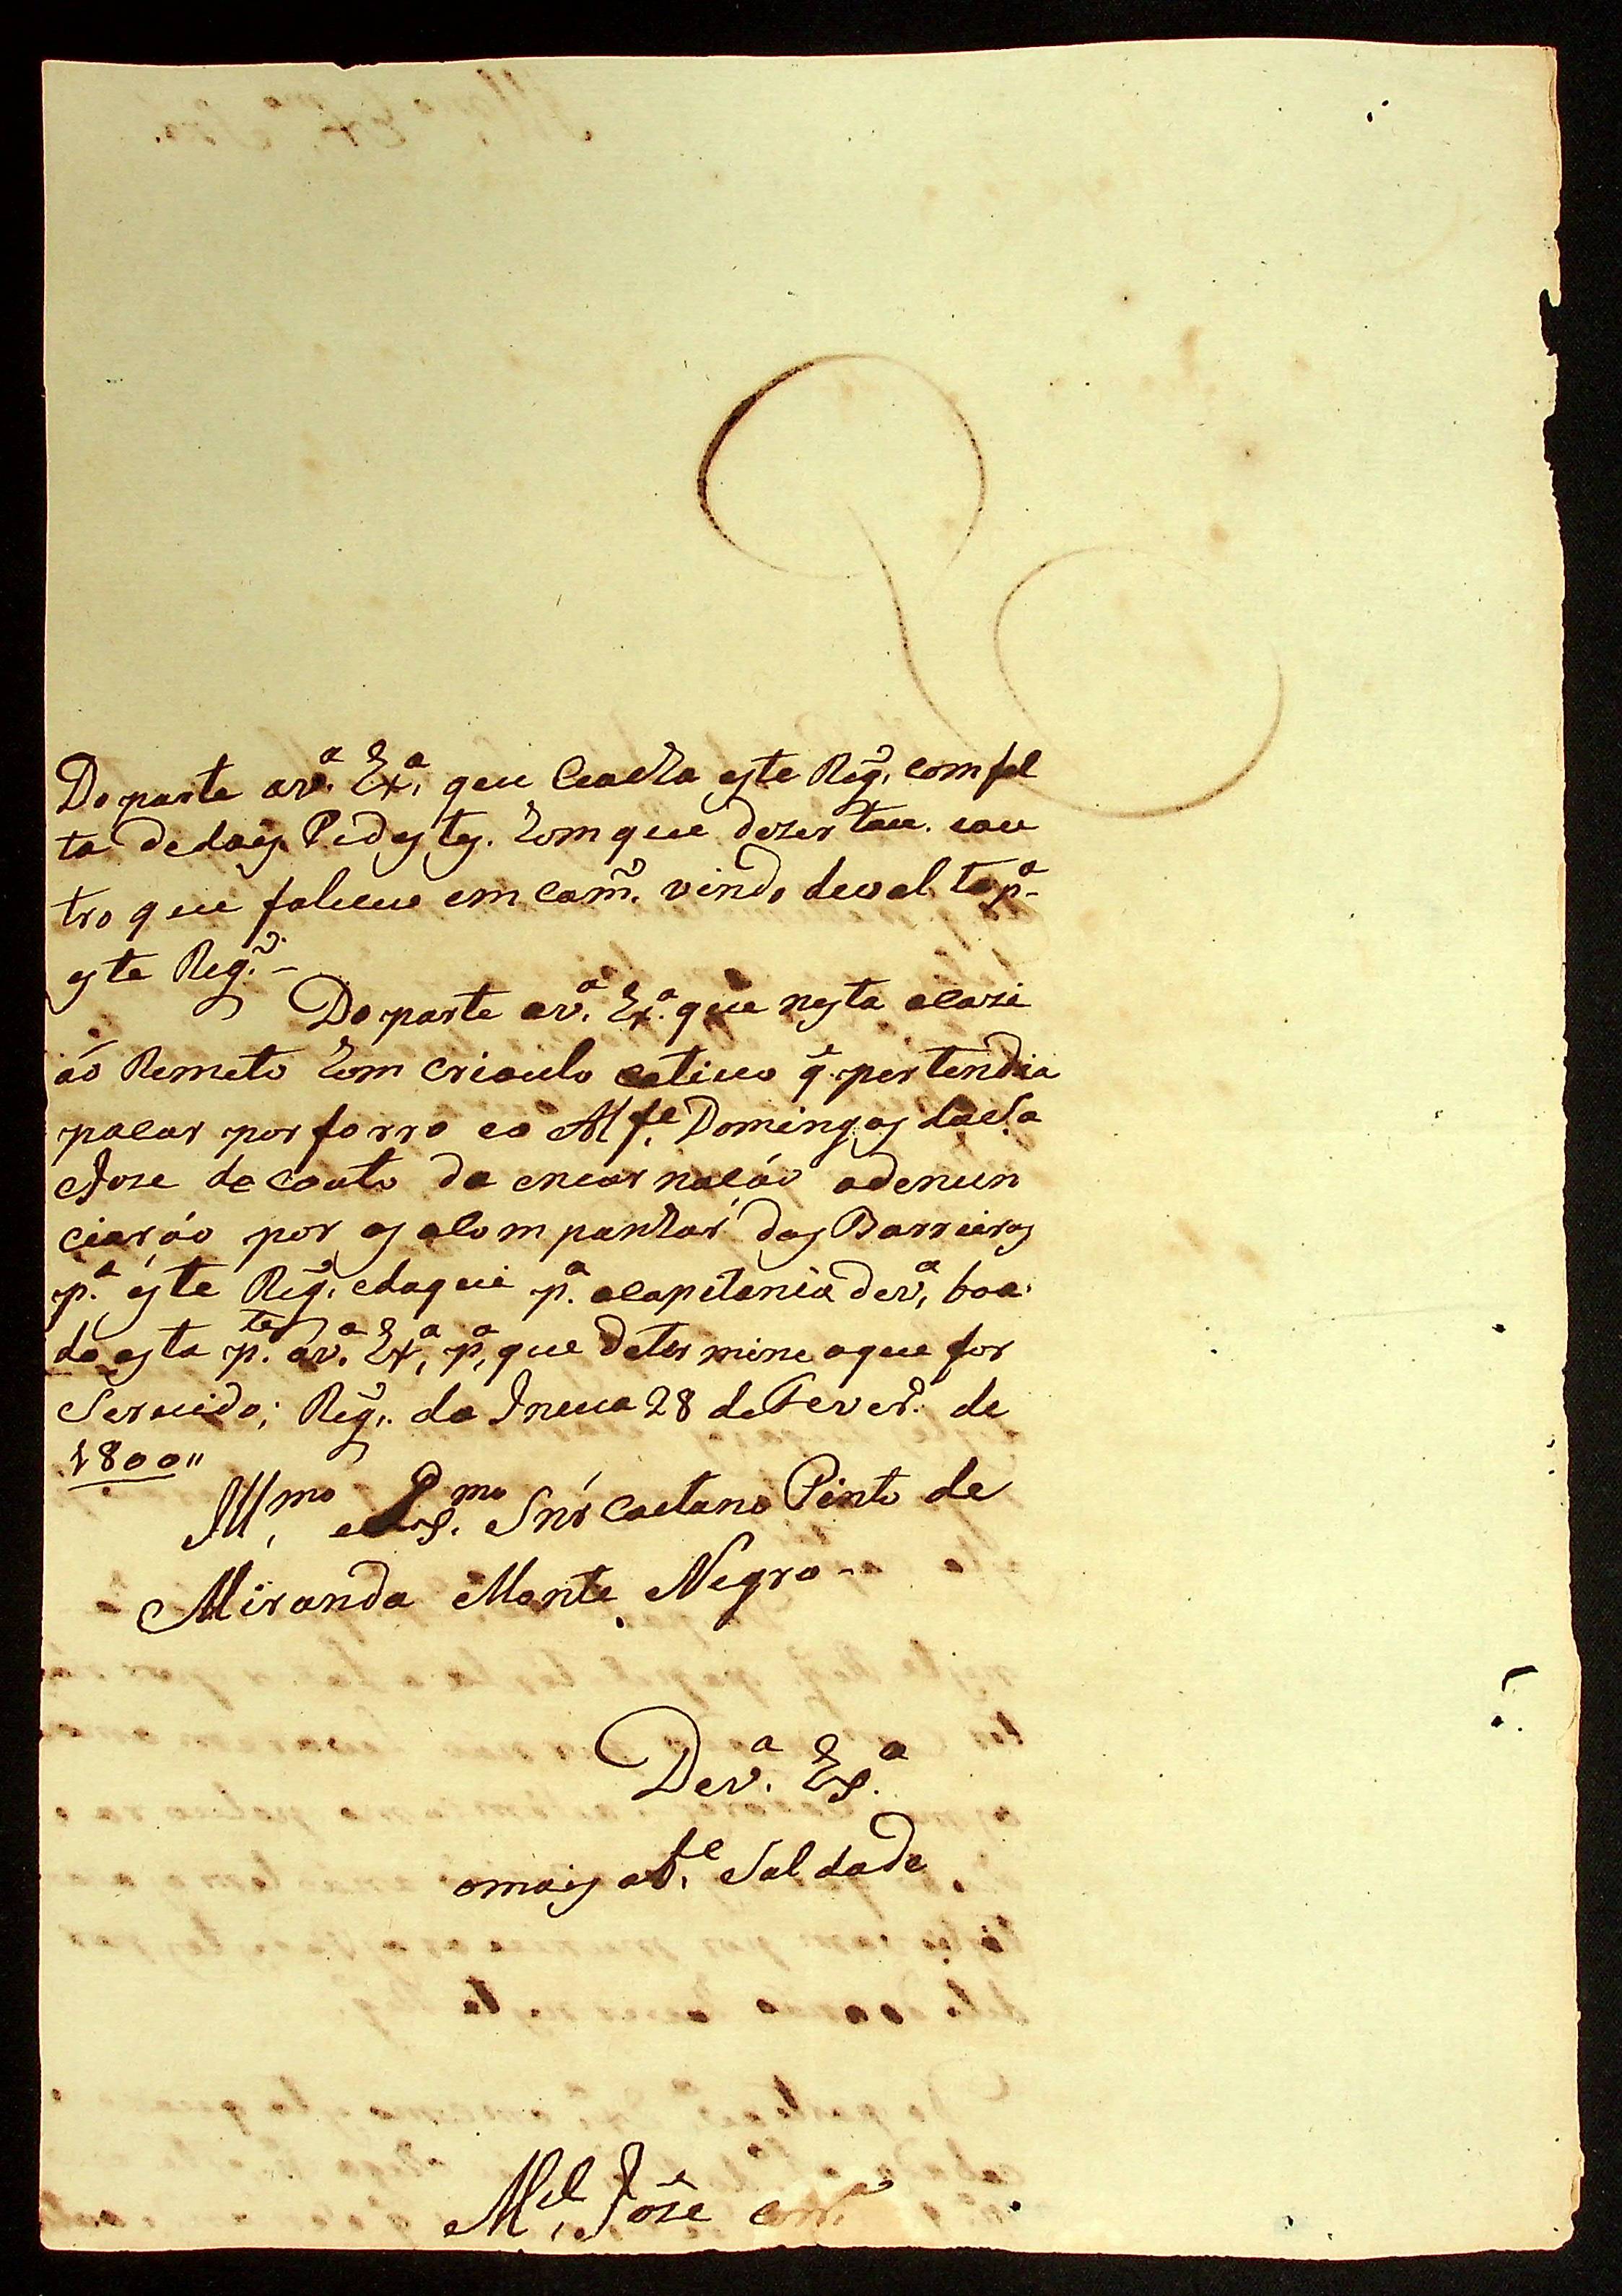 Do parte av.ª Ex.ª que Cacha este Reg.º com fal
ta dedois Pedestes. hom que dezertou. eou
tro que faleceo em cam.º vindo devolta p.ª
este Reg.º -
Do parte av.ª Ex.ª que nesta ocazi
aó Remeto hom crioulo cativo q.e pertendia
pacar por forro eo Alf.e Domingos
Joze de couto da encarnacaó adenun
ciaraó por os acompanhar das Barreiras
p.ª este Reg.º edaqui p.ª acapitania dev.ª
do esta p.te av.ª Ex.ª p.ª que determine oque for
Servido; Reg.º da Insua 28 de Fever.º de
1800"
Ill.mo e Ex.mo Snr Caetano Pinto de
Miranda Monte Negro -
Dev.ª Ex.ª
omais ob.e Saldado
M.el Joze Corr.ª